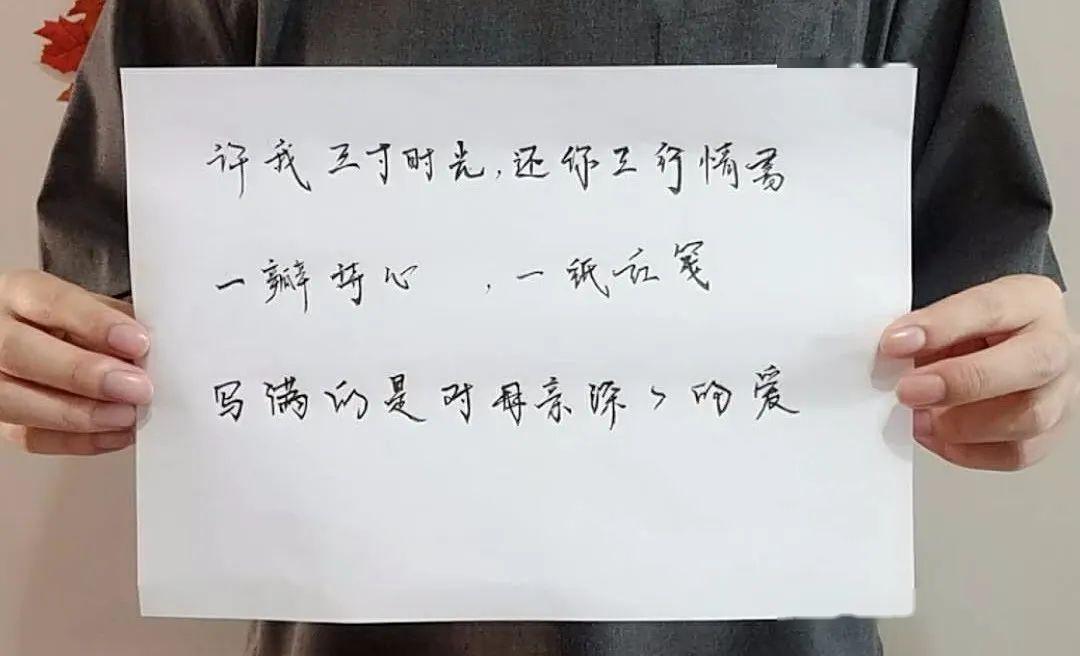 许我三寸时光,还你三行情书
一瓣诗心,一纸红笺
写满的是对母亲深深的爱